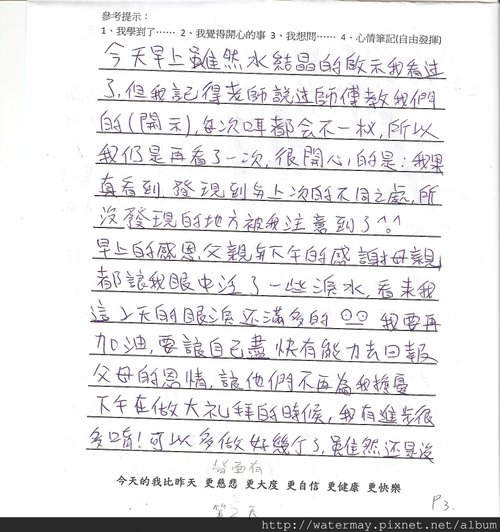 參考提示：
1、我學到了⋯⋯ 2、我覺得開心的事 3、我想問⋯⋯ 4、心情筆記(自由發揮)
今天早上雖然水結晶的啟示我看过
了,但我記得老師說过師傅教我們
的(開示),每次聽都会不一樣,所以
我仍是再看了一次,很開心的是:我果
真看到,發現到与上次的不同之處,所
沒發現的地方被我注意到了^^
早上的感恩父親与下午的感謝母親
都讓我眼中泛了一些淚水,看來我
這2天的眼淚还滿多的 我要再
加油,要讓自己盡快有能力去回報
父母的恩情,讓他們不再為我擔憂
下午在做大礼拜的時候,我有進步很
多唷!可以多做好幾个了,雖然还是沒
背面有
今天的我比昨天 更慈悲 更大度 更自信 更健康 更快樂
第2天
P3.
http://watermay.pixnet.net/album